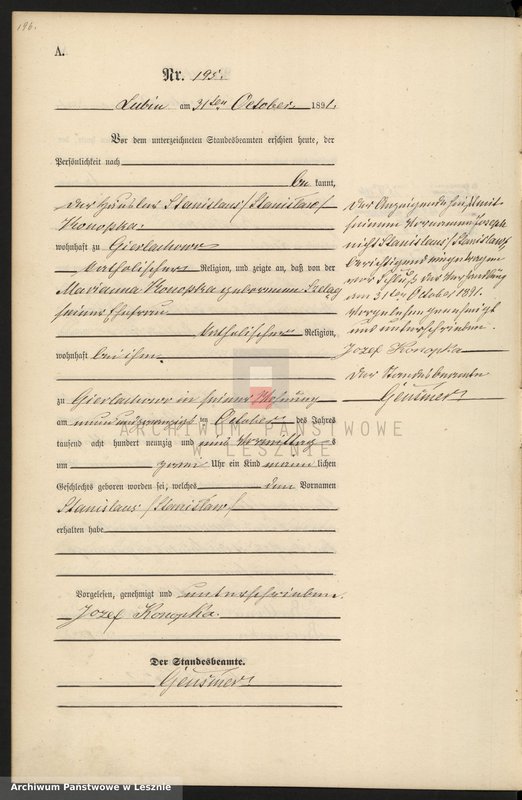 196.
A.
Nr. 195.
Lubin am 31ten October 1891.
Vor dem unterzeichneten Standesbeamten erschien heute, der
Persönlichkeit nach
be kannt,
der Häusler Stanislaus /Stanisław/
Konopka
wohnhaft zu Gierlachowo
katholischer Religion, und zeigte an, daß von der
Marianna Konopka geborenen Szelag
seiner Ehefrau
katholischer Religion,
wohnhaft bei ihm
zu Gierlachowo in seiner Wohnung
am neunundzwanzigsten October des Jahres
tausend acht hundert neunzig und eins Vormittag s
um zwei Uhr ein Kind männ lichen
Geschlechts geboren worden sei, welches den Vornamen
Stanislaus /Stanisław/
erhalten habe
Vorgelesen, genehmigt und unterschrieben.
Jozef Konopka.
Der Standesbeamte.
Geusmer
Der Anzeigende heißt mit
seinem Vornamen Joseph
nicht Stanislaus /Stanisław/
berichtigend eingetragen
vor Schluß der Verhandlung
am 31ten October 1891.
Vorgelesen genehmigt
und unterschrieben.
Jozef Konopka
Der Standesbeamte
Geusmer
ARCHIWUM PAŃSTWOWE
W LESZNIE
Archiwum Państwowe w Lesznie